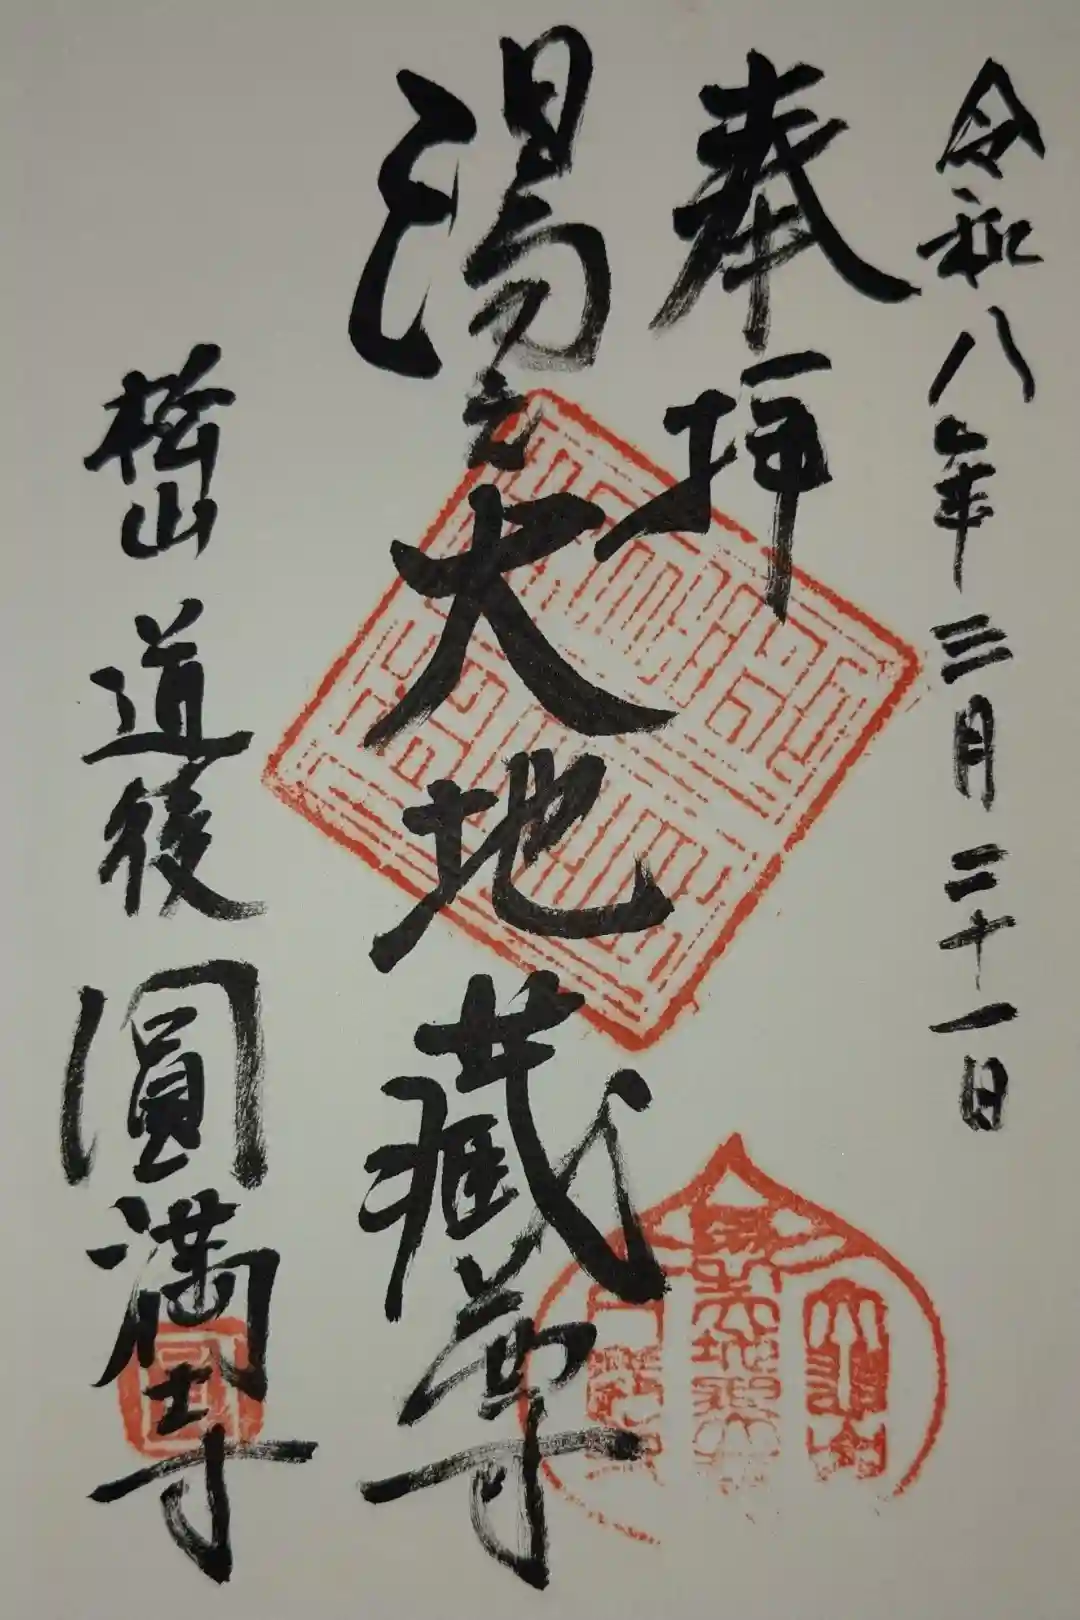 令和八年三月二十一日
奉拝
湯之大地蔵尊
松山 道後 圓満寺